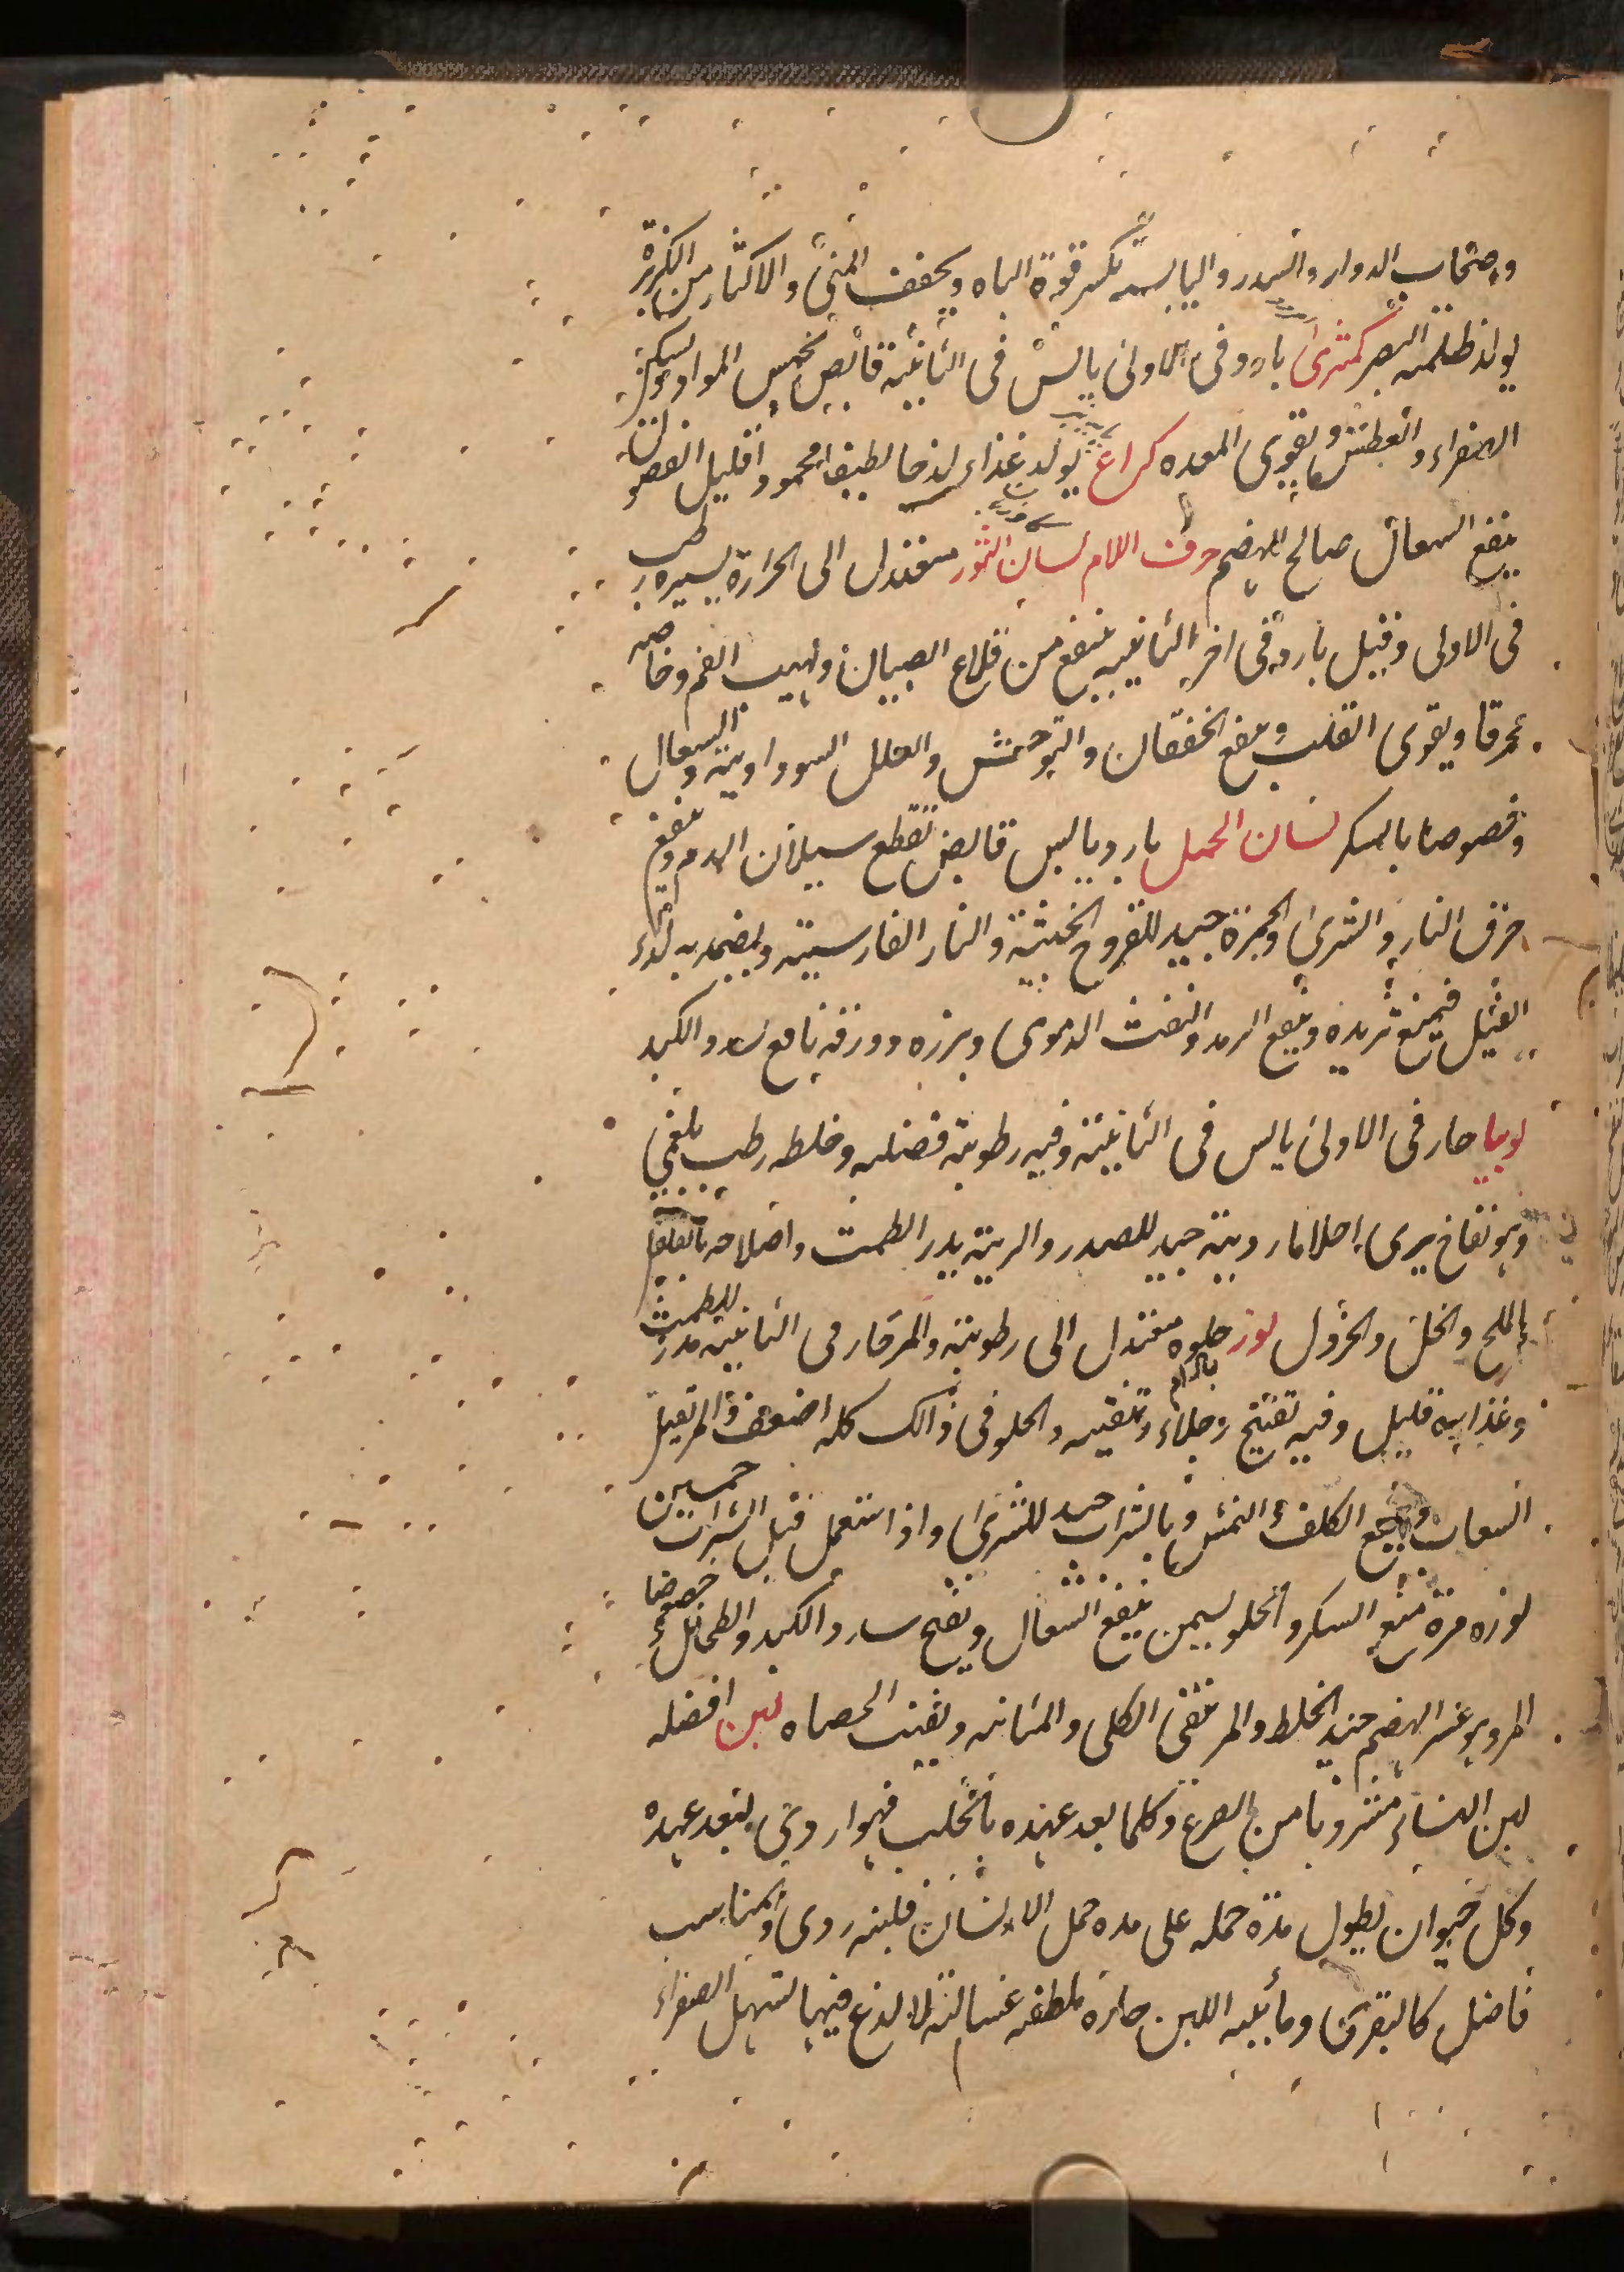 واصحاب الدوار والسدر واليابسه تكسر قوة الباه ويجفف المنى والاكثار من الكزبرة
يولد ظلمه البصر كمثرى بارد فى الاولى يابس فى الثانية قابض يحبس المواد ويسكن
الصفراء والعطش ويقوى المعده كراع يولد غذاء لذجا لطيفا محمودا قليل الفضول
ينفع السعال صالح الهضم حرف اللام لسان الثور معتدل الى الحرارة يسيره رطب
فى الاولى وقيل بارد فى اخر الثانيه ينفع من قلاع الصبيان ولهيب الفم وخاصه
محرقا ويقوى القلب وينفع الخفقان والتوحش والعلل السوداوية والسعال
وخصوصا بالسكر لسان الحمل بارد يابس قابض تقطع سيلان الدم وينفع
حرق النار والشرى والجمرة جيد للقروح الخبيثة والنار الفارسية ويضمد به لداء
الفيل فيمنع تزيده وينفع الرمد والنفث الدموى وبزره وورقه نافع سدد الكبد
لوبيا حار فى الاولى يابس فى الثانية وفيه رطوبة فضليه وخلطه رطب بلغمي
وهو نفاخ يرى احلاما ردية جيد للصدر والرية يدر الطمث واصلاحه
بالملح والخل والخردل لوز حلوه معتدل الى رطوبة والمر حار فى الثانية مدر للطمث
بادام
وغذايه قليل وفيه تفتيح وجلاء وتنقيه والحلو فى ذالك كله اضعف والمر
وينفع الكلف والنمش وبالشراب جيد للشرى واذا استعمل قبل الشراب خمسين
لوزه مرة منع السكر والحلو يسمن ينفع السعال ويفتح سدد الكبد والطحال خصوصا
المر وهو عسر الهضم جيد الخلط والمر ينقى الكلى والمثانه ويفتت الحصاه لبن افضله
لبن النساء مشروبا من الضرع وكلما بعد عهده بالحلب فهو اردى لبعد عهده
وكل حيوان يطول مدة حمله على مده حمل الانسان فلبنه ردى والمناسب
فاضل كالبقرى ومائيه اللبن حاره ملطفه غساله لا لذع فيها لتسهل الصفراء